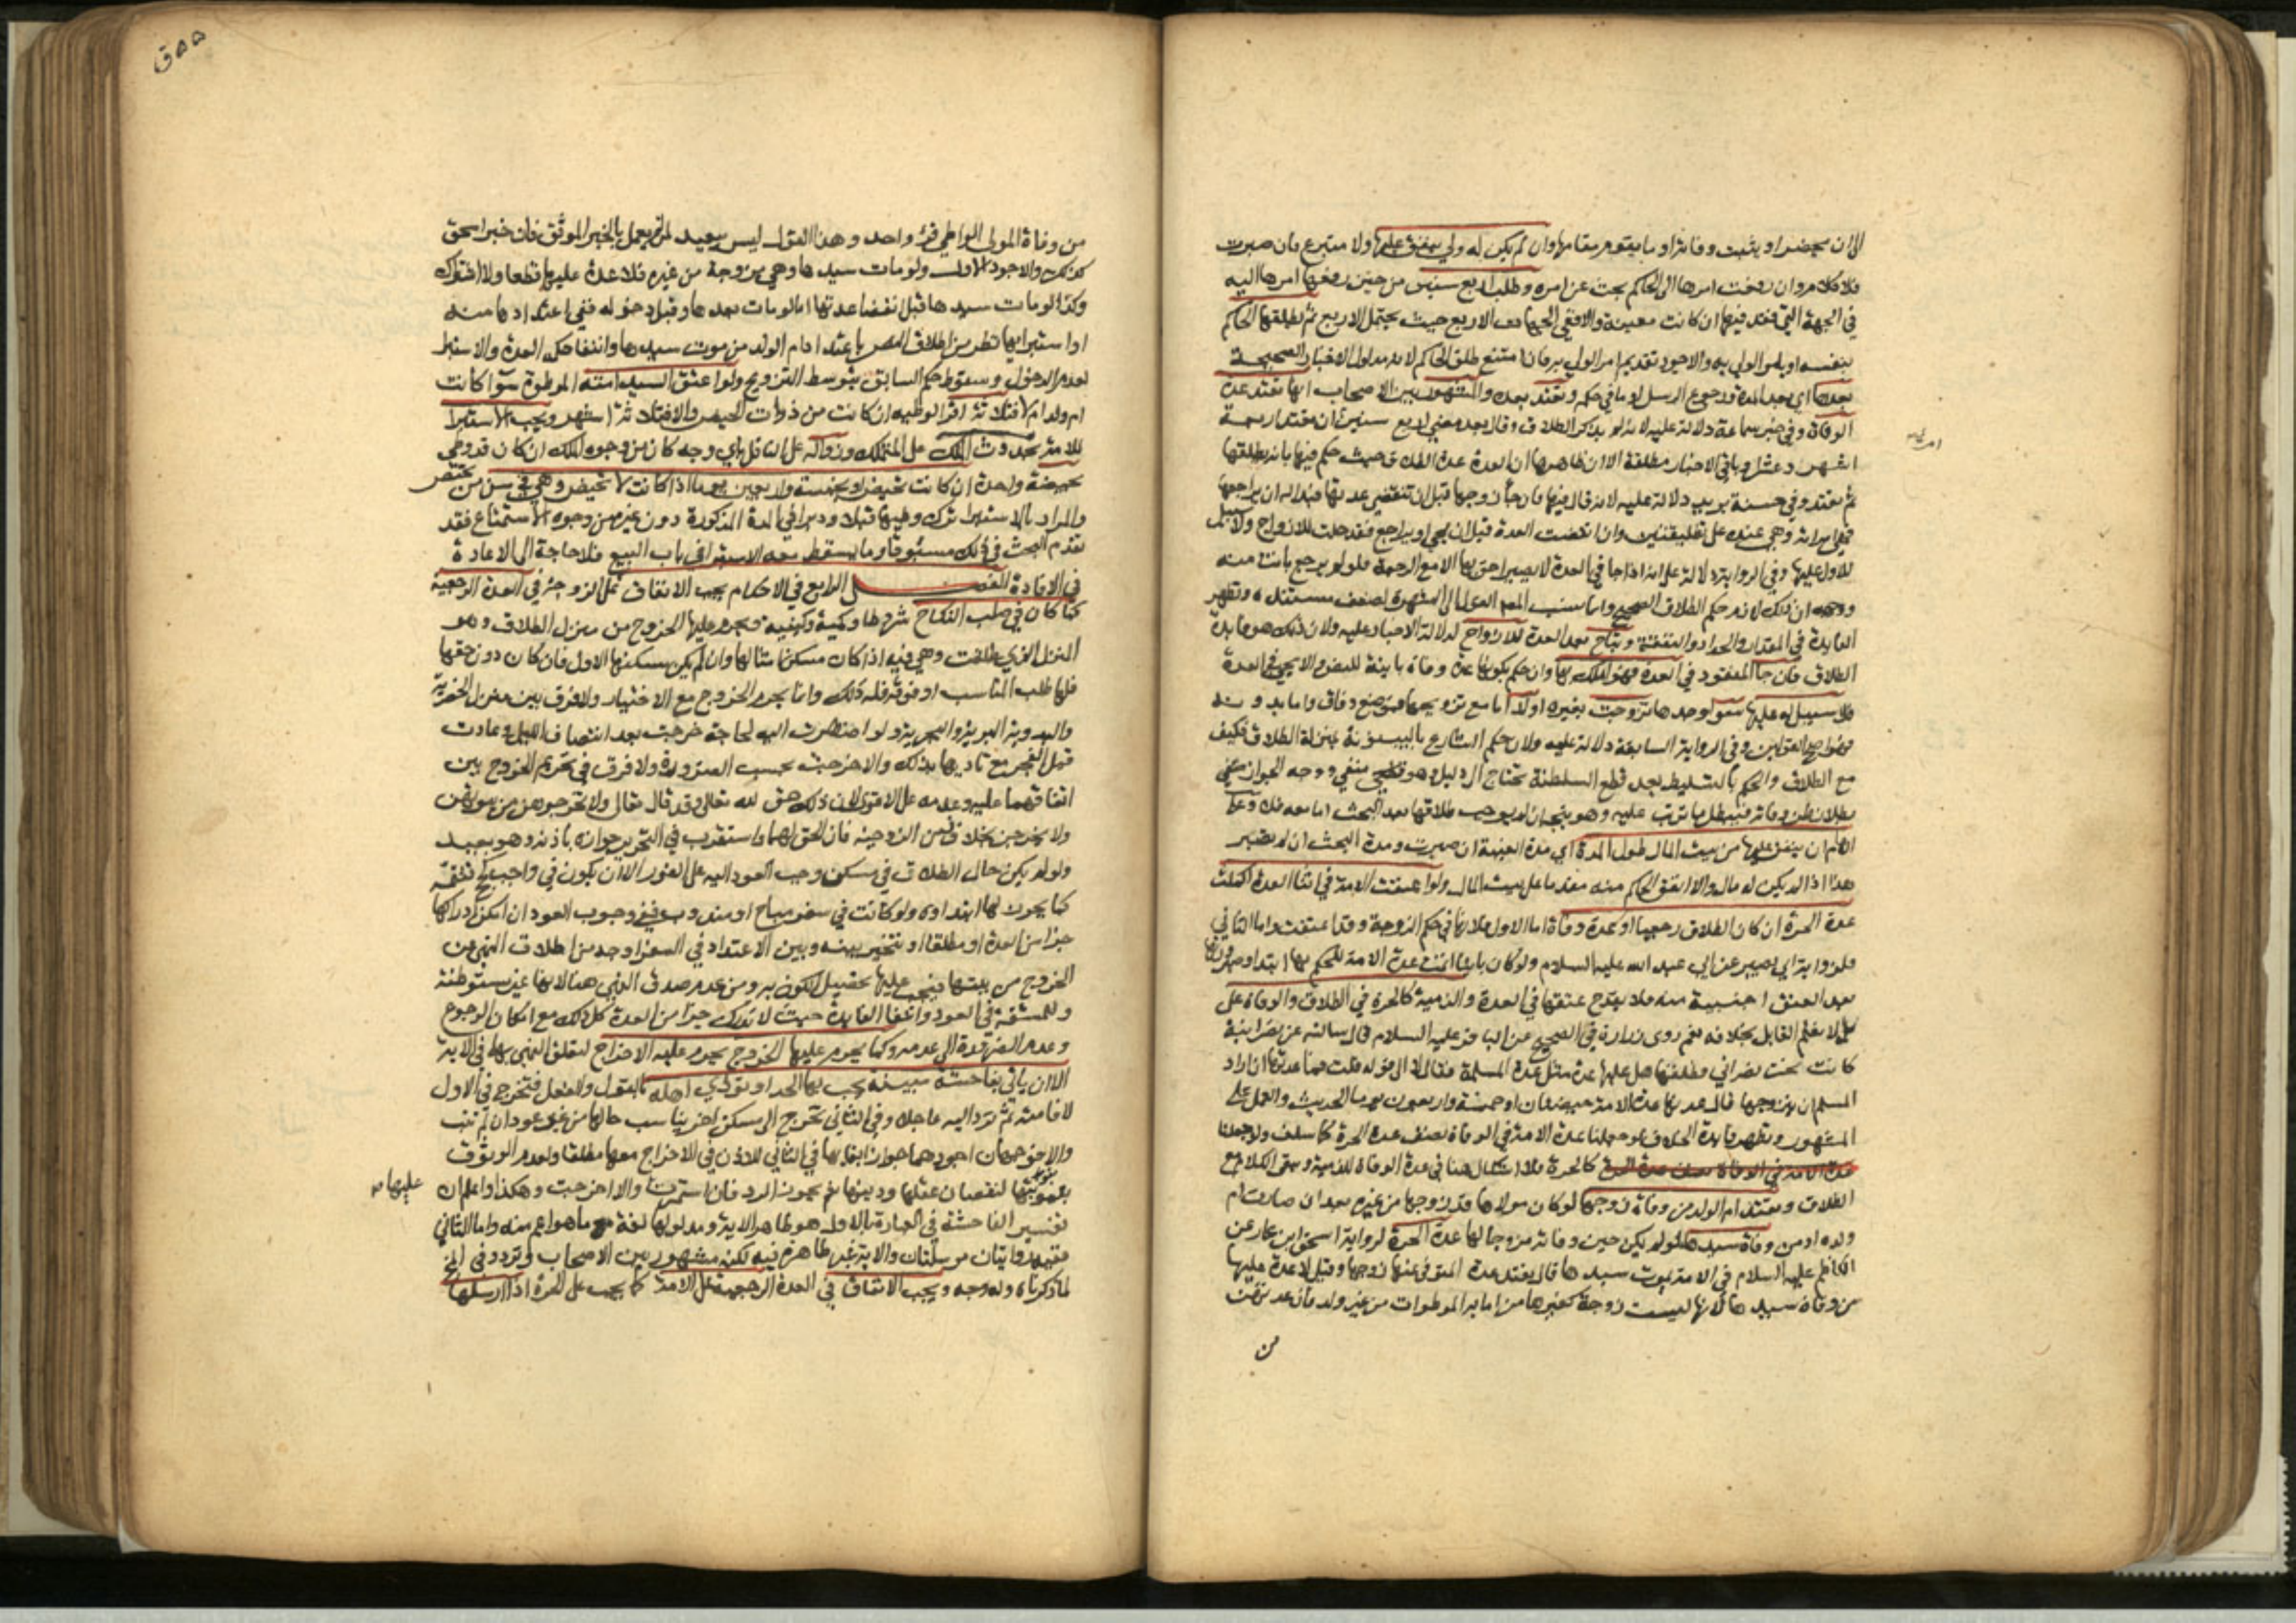 الا ان يحضر او يثبت وفاته او ما يقوم مقامها وان لم يكن له ولي ينفق عليها ولا متبرع فان صبرت
فلا كلام وان رفعت امرها الى الحاكم بحث عن امره وطلب اربع سنين من حين رفعها امرها اليه
في الجهة التي فقد فيها ان كانت معينة والا ففي الجهات الاربع حيث يحتمل الاربع ثم يطلقها الحاكم
بنفسه او يامر الولي به والاجود تقديم امر الولي به فان امتنع طلق الحاكم لانه مدلول الاخبار الصحيحة
بعدها اي بعد المدة ورجوع الرسل او ما في حكمه وتعتد بعده والمشهور بين الاصحاب انها تعتد عدة
الوفاة وفي خبر سماعة دلالة عليه لانه لم يذكر الطلاق وقال بعد مضي اربع سنين ان تعتد اربعة
اشهر وعشرا وباقي الاخبار مطلقة الا ان ظاهرها ان العدة عدة الطلاق حيث حكم فيها بانه يطلقها
ثم تعتد وفي حسنة بريد دلالة عليه لانه قال فيها فان جاء زوجها قبل ان تنقضي عدتها فبدا له ان يراجعها
فهي امراته وهي عنده على تطليقتين وان انقضت العدة قبل ان يجي او يراجع فقد حلت للازواج ولا سبيل
للاول عليها وفي الرواية دلالة على انه اذا جا في العدة لا يصير احق بها الا مع الرجعة فلو لم يرجع بانت منه
ووجهه ان ذلك لازم حكم الطلاق الصحيح وانما نسب المص القول الى الشهرة لضعف مستنده وتظهر
الفايدة في المقدار والحداد والنفقة وتباح بعد العدة للازواج لدلالة الاخبار عليه ولان ذلك هو فايدة
الطلاق فان جا المفقود في العدة فهو املك بها وان حكم بكونها عدة وفاة باينة للنص والا يجي في العدة
فلا سبيل له عليها سوا وجدها تزوجت بغيره اولا اما مع تزويجها فموضع وفاق واما بدونه
فهو اصح القولين وفي الرواية السابقة دلالة عليه ولان حكم الشارع بالبينونة بمنزلة الطلاق فكيف
مع الطلاق والحكم بالتسليط بعد قطع السلطنة يحتاج الى دليل وهو منفي ووجه الجواز
بطلان ظن وفاته فيبطل ما ترتب عليه وهو يتجه ان لم نوجب طلاقها بعد البحث اما معه فلا وعلى
الامام ان ينفق عليها من بيت المال طول المدة اي مدة الغيبة ان صبرت ومدة البحث ان لم تصبر
هذا اذا لم يكن له مال والا انفق الحاكم منه مقدما على بيت المال ولو اعتقت الامة في اثنا العدة اكملت
عدة الحرة ان كان الطلاق رجعيا او عدة وفاة اما الاول فلانها في حكم الزوجة وقد اعتقت واما الثاني
فلرواية ابي بصير عن ابي عبد الله عليه السلام ولو كان باينا اتمت عدة الامة للحكم بها ابتدا وصيرورتها
بعد العتق اجنبية منه فلا يقدح عتقها في العدة والذمية كالحرة في الطلاق والوفاة على
لا نعلم القايل بخلافه نعم روى زرارة في الصحيح عن الباقر عليه السلام قال سالته عن نصرانية
كانت تحت نصراني وطلقها هل عليها عدة مثل عدة المسلمة فقال لا الى قوله قلت فما عدتها ان اراد
المسلم ان يتزوجها قال عدتها عدة الامة حيضتان او خمسة واربعون يوما الحديث والعمل على
المشهور وتظهر فايدة الخلاف لو جعلنا عدة الامة في الوفاة نصف عدة الحرة كما سلف ولو جعلنا
عدة الامة في الوفاة نصف عدة الحرة كالحرة فلا اشكال هنا في عدة الوفاة للذمية ويبقى الكلام مع
الطلاق وتعتد ام الولد من وفاة زوجها لو كان مولاها قد زوجها من غيره بعد ان صارت ام
ولده او من وفاة سيدها لو لم يكن حين وفاته مزوجا لها عدة الحرة لرواية اسحق ابن عمار عن
الكاظم عليه السلام في الامة يموت سيدها قال تعتد عدة المتوفى عنها زوجها وقيل لا عدة عليها
من وفاة سيدها لانها ليست زوجة كغيرها من امايه الموطوات من غير ولد فان عدتهن
من
من وفاة المولى الواطي قرء واحد وهذا القول ليس ببعيد لمن لم يعمل بالخبر الموثق فان خبر اسحق
كذلك والاجود الاول ولو مات سيدها وهي مزوجة من غيره فلا عدة عليها قطعا ولا استبراء
وكذا لو مات سيدها قبل انقضا عدتها اما لو مات بعدها وقبل دخوله ففي اعتدادها منه
او استبرائها نظر من اطلاق النص باعتداد ام الولد من موت سيدها وانتفا حكم العدة والاستبرا
لعدم الدخول وسقوط حكم السابق بتوسط التزويج ولو اعتق السيد امته الموطوة سوا كانت
ام ولد ام لا فثلاثة اقرا لوطيه ان كانت من ذوات الحيض والا فثلاثة اشهر ويجب الاستبرا
للامة بحدوث الملك على المتملك وزواله على الناقل باي وجه كان من وجوه الملك ان كان قد وطي
بحيضة واحدة ان كانت تحيض او بخمسة واربعين يوما اذا كانت لا تحيض وهي في سن من تحيض
والمراد بالاستبرا ترك وطيها قبلا ودبرا في المدة المذكورة دون غيره من وجوه الاستمتاع فقد
تقدم البحث في ذلك مستوفا وما يسقط معه الاستبرا في باب البيع فلا حاجة الى الاعادة
في الافادة الفصل الرابع في الاحكام يجب الانفاق على الزوجة في العدة الرجعية
كما كان في صلب النكاح شروطا وكمية وكيفية ويحرم عليها الخروج من منزل الطلاق وهو
المنزل الذي طلقت وهي فيه اذا كان مسكن امثالها وان لم يكن مسكنها الاول فان كان دون حقها
فلها طلب المناسب او فوقه فله ذلك وانما يحرم الخروج مع الاختيار ولا فرق بين منزل الحضرية
والبدوية البرية والبحرية ولو اضطرت اليه لحاجة خرجت بعد انتصاف الليل وعادت
قبل الفجر مع تاديها بذلك والا خرجت بحسب الضرورة ولا فرق في تحريم الخروج بين
اتفاقهما عليه وعدمه على الاقوى لان ذلك حق لله تعالى وقد قال تعالى ولا تخرجوهن من بيوتهن
ولا يخرجن بخلاف زمن الزوجية فان الحق لهما واستقرب في التحرير جوازه باذنه وهو بعيد
ولو لم يكن حال الطلاق في مسكن وجب العود اليه على الفور الا ان تكون في واجب كحج فتتمه
كما يجوز لها ابتداوه ولو كانت في سفر مباح او مندوب ففي وجوب العود ان امكن ادراكها
جزا من العدة او مطلقا او تتخير بينه وبين الاعتداد في السفر اوجه من اطلاق النهي عن
الخروج من بيتها فيجب عليها تحصيل الكون به ومن عدم صدق النهي هنا لانها غير مستوطنة
وللمشقة في العود وانتفا الفايدة حيث لا تدرك جزا من العدة كل ذلك مع امكان الرجوع
وعدم الضرورة الى عدمه وكما يحرم عليها الخروج يحرم عليه الاخراج لتعلق النهي بهما في الاية
الا ان ياتي بفاحشة مبينة يجب بها الحد او توذي اهله بالقول والفعل فتخرج في الاول
لاقامته ثم ترد اليه عاجلا وفي الثاني تخرج الى مسكن اخر يناسب حالها من غير عود ان لم تتب
والا فوجهان اجودهما جواز ابقائها في الثاني للاذن في الاخراج معها مطلقا ولعدم الوثوق
بتوبتها لنقصان عقلها ودينها نعم يجوز الرد فان استمرت والا اخرجت وهكذا واعلم ان عليها
تفسير الفاحشة في العبارة بالاول هو ظاهر الاية ومدلولها لغة ما هو اعم منه واما الثاني
ففيه روايتان مرسلتان والاية غير ظاهرة فيه لكنه مشهور بين الاصحاب وتردد في
لما ذكرناه وله وجه ويجب الانفاق في العدة الرجعية على الامة كما يجب على الحرة اذا ارسلها